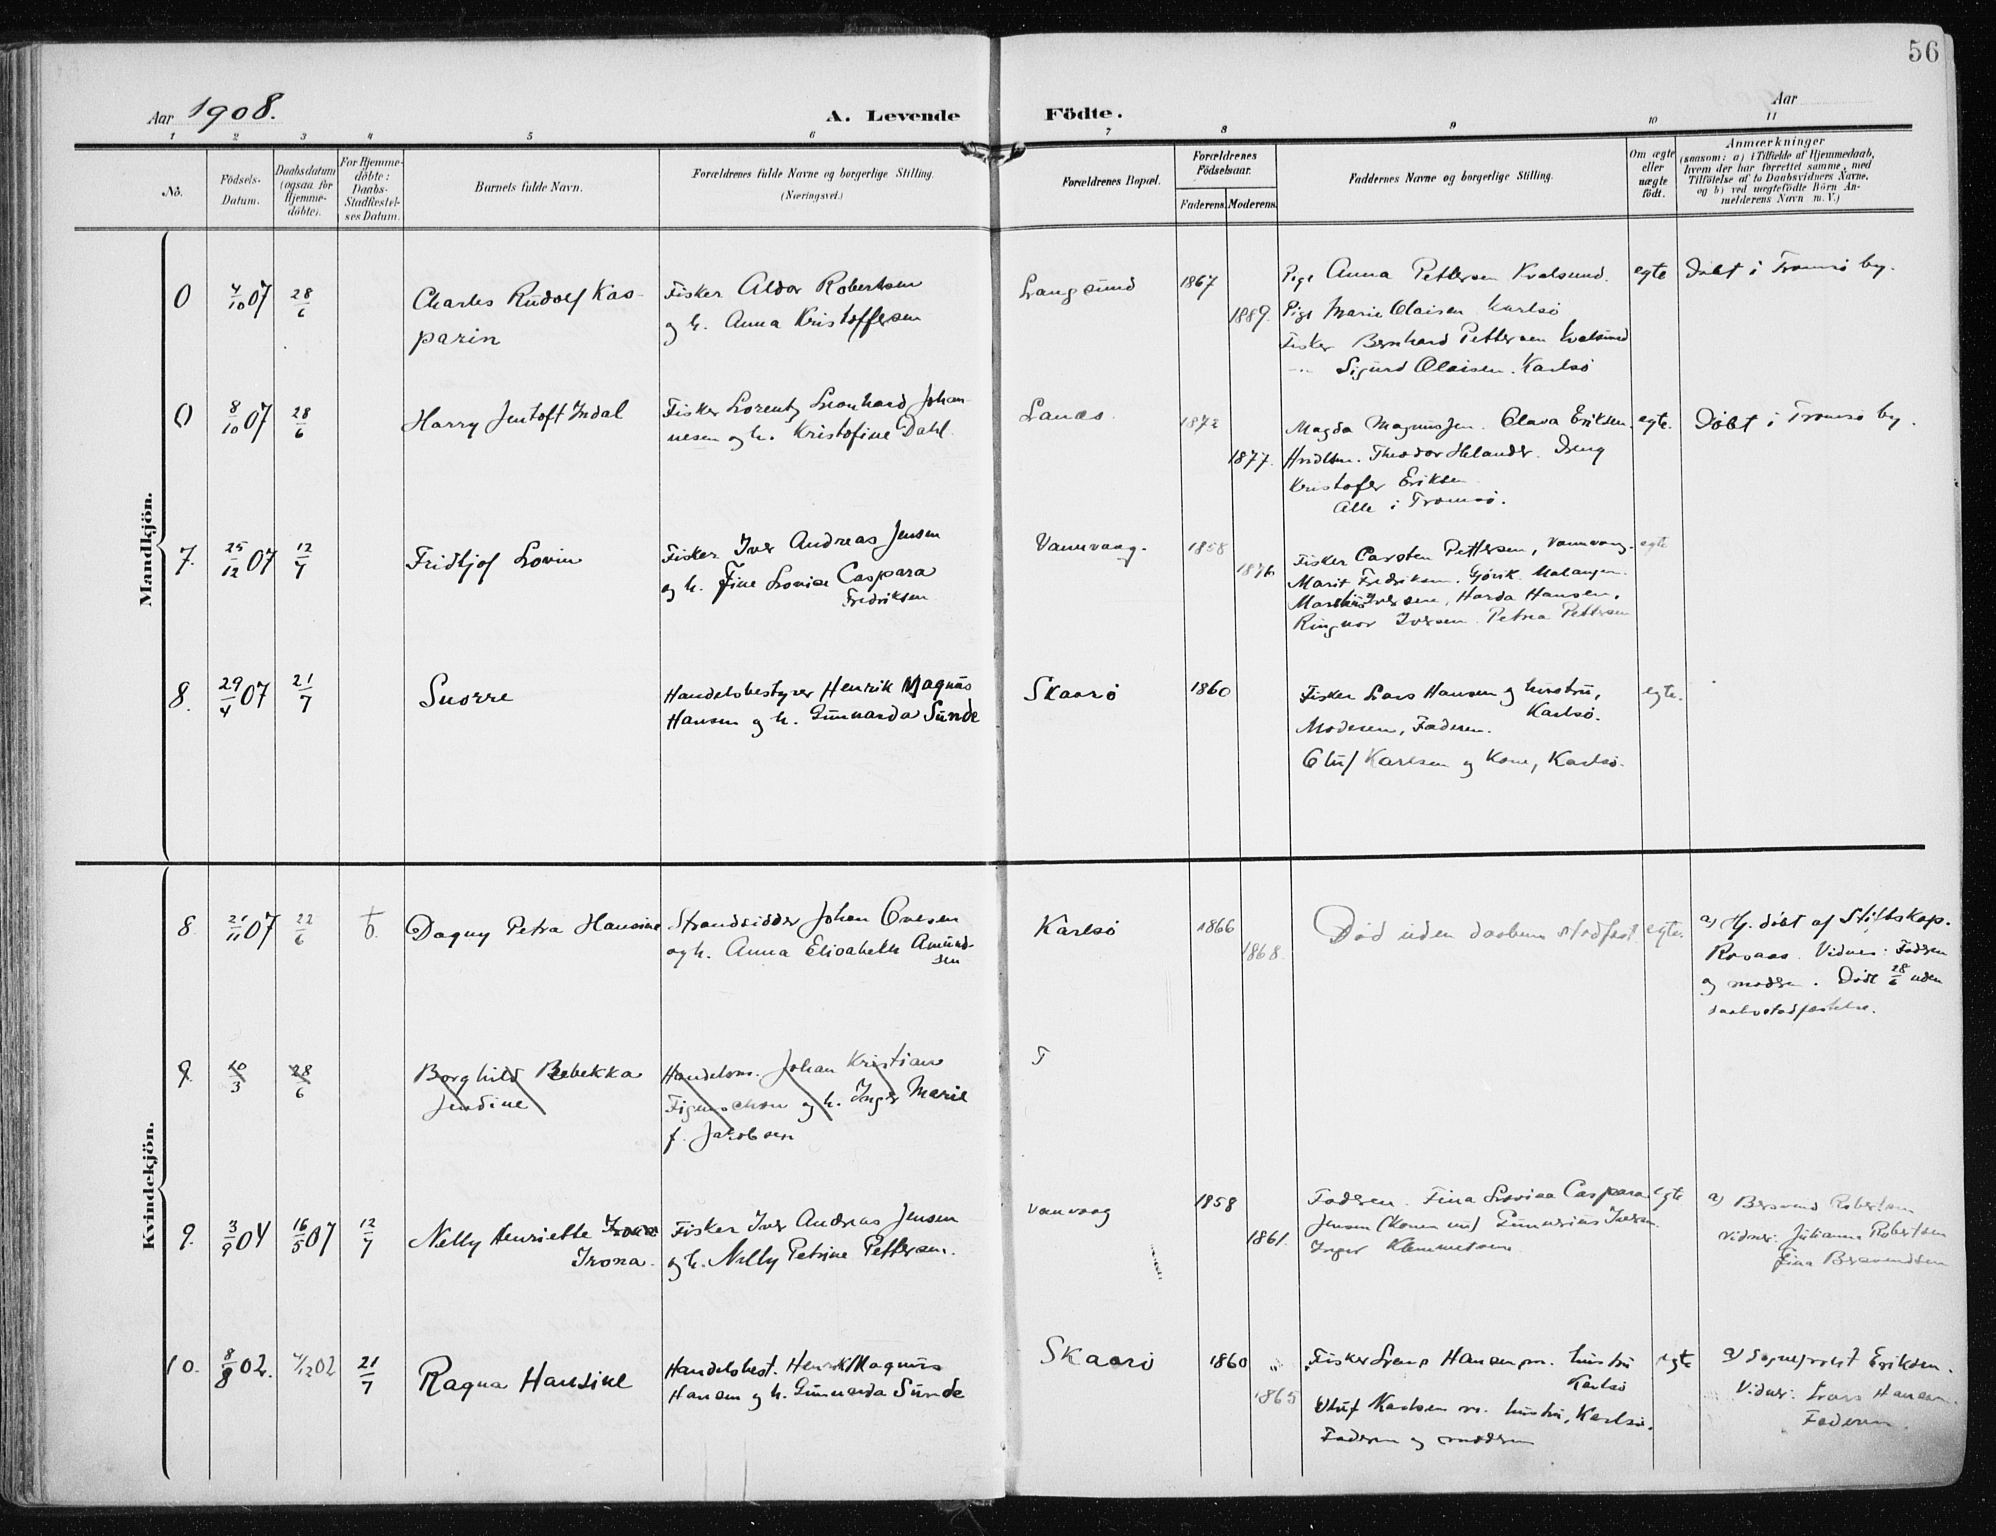 56
Aar 1908.
A. Levende Födte.
Aar
1 2 3 4 5 6 7 8 9 10 11
No.
Födsels-
Datum.
Daabsdatum
(ogsaa for
Hjemme-
döbte).
For Hjemme-
döbte:
Daabs-
Stadfæstel-
ses Datum.
Barnets fulde Navn.
Forældrenes fulde Navne og borgerlige Stilling.
(Næringsvei.)
Forældrenes Bopæl.
Forældrenes
Födselsaar.
Faderens. Moderens.
Faddernes Navne og borgerlige Stilling.
Om ægte
eller
uægte
födt.
Anmærkninger
(saasom: a) i Tilfælde af Hjemmedaab,
hvem der har forrettet samme, med
Tilföielse af to Daabsvidners Navne,
og b) ved uægtefödte Börn An-
melderens Navn m. V.)
Mandkjön.
0 4/10 07 28/6
Charles Rudolf Kas-
parin
Fisker Aldor Robertsen
og h. Anna Kristoffersen
Langsund
1867
1889.
Pige Anna Pettersen Kvalsund.
Pige Marie Olaisen Karlsö
Fisker Bernhard Pettersen Kvalsund
-"- Sigurd Olaisen. Karlsö
egte
Döbt i Tromsö by.
0 8/10 07 28/6
Harry Jentoft Indal
Fisker Lorentz Leonhard Johan-
nesen og h. Kristofine Dahl.
Lanes
1872
1877.
Magda Magnussen. Olava Eriksen.
Theodor Helander.
Kristofer Eriksen
Alle i Tromsö.
egte.
Döbt i Tromsö by.
7. 25/12 07 12/7
Fridtjof Lovin
Fisker Iver Andreas Jensen
og h. Fine Lovise Caspara
Fredriksen
Vannvaag.
1858
1876
Fisker Carsten Pettersen, Vannvaag.
Marit Fredriksen. Gjövik. Malangen.
Iversen, Harda Hansen,
Ringvor Iversen. Petrea Pettersen
egte
8. 29/4 07 21/7
Snorre
Handelsbestyrer Henrik Magnus
Hansen og h. Gunnarda Sunde
Skaarö
1860
Fisker Lars Hansen og hustru,
Karlsö.
Moderen, Faderen.
Oluf Karlsen og Kone, Karlsö.
egte.
Kvindekjön.
8. 21/11 07 22/6 † b.
Dagny Petra Hansine
Strandsidder Johan Ovesen
og h. Anna Elisabeth Amund-
sen
Karlsö
1866
1868.
Död uden daabens stadfæst.
egte.
a) Hj. döbt af Stiftskap.
Rosaas. Vidner: Faderen
og moderen. Död 28/6 uden
daabsstadfæstelse.
9. 10/3 28/6
Borghild Rebekka
Jendine
Handelsm. Johan Kristian
Figenschou og h. Inger Marie
f. Jakobsen
T
9. 3/9 04 16/5 07 12/7
Nelly Henriette
Irona.
Fisker Iver Andreas Jensen
og h. Nelly Petrine Pettersen.
Vanvaag
1858
1861.
Faderen. Fina Lovisa Caspara
Jensen (Konen Gunnerius Iversen.
Inger Klemmetsen
egte
a) Bersvend Robertsen
Vidner: Julianne Robertsen
Fina Bersvendsen
10. 8/8 02. 4/12 02 21/7
Ragna Hansine
Handelsbest. Henrik Magnus
Hansen og h. Gunnarda Sunde
Skaarö
1860
1865
Fisker Hansen m. hustru
Karlsö
Oluf Karlsen m. hustru, Karlsö.
Faderen og moderen
egte
a) Sogneprest Eriksen.
Vidner: Lars Hansen.
Faderen.